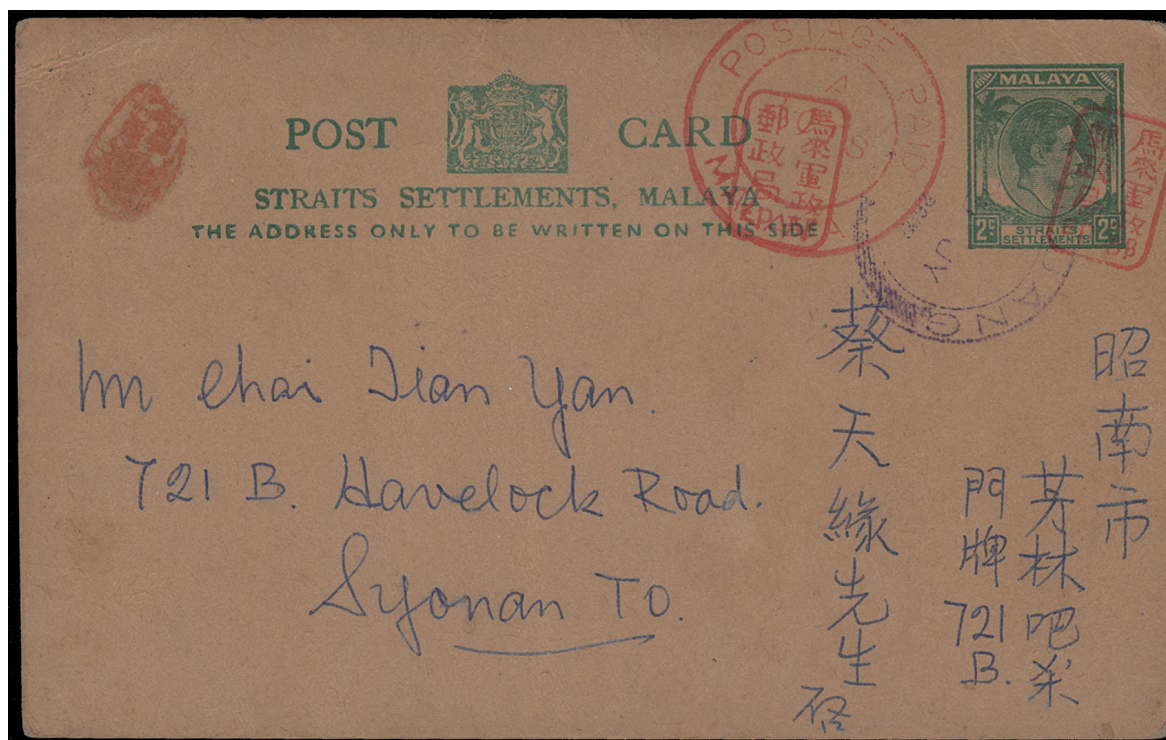 POST CARD
STRAITS SETTLEMENTS, MALAYA
THE ADDRESS ONLY TO BE WRITTEN ON THIS SIDE
POSTAGE PAID
馬來軍政
郵政局
MALAYA
STRAITS
SETTLEMENTS
2c 2c
JY
Mr Chai Tian Yan.
721 B. Havelock Road.
Syonan To.
昭南市
芽林吧殺
門牌721 B.
蔡天緣先生啓